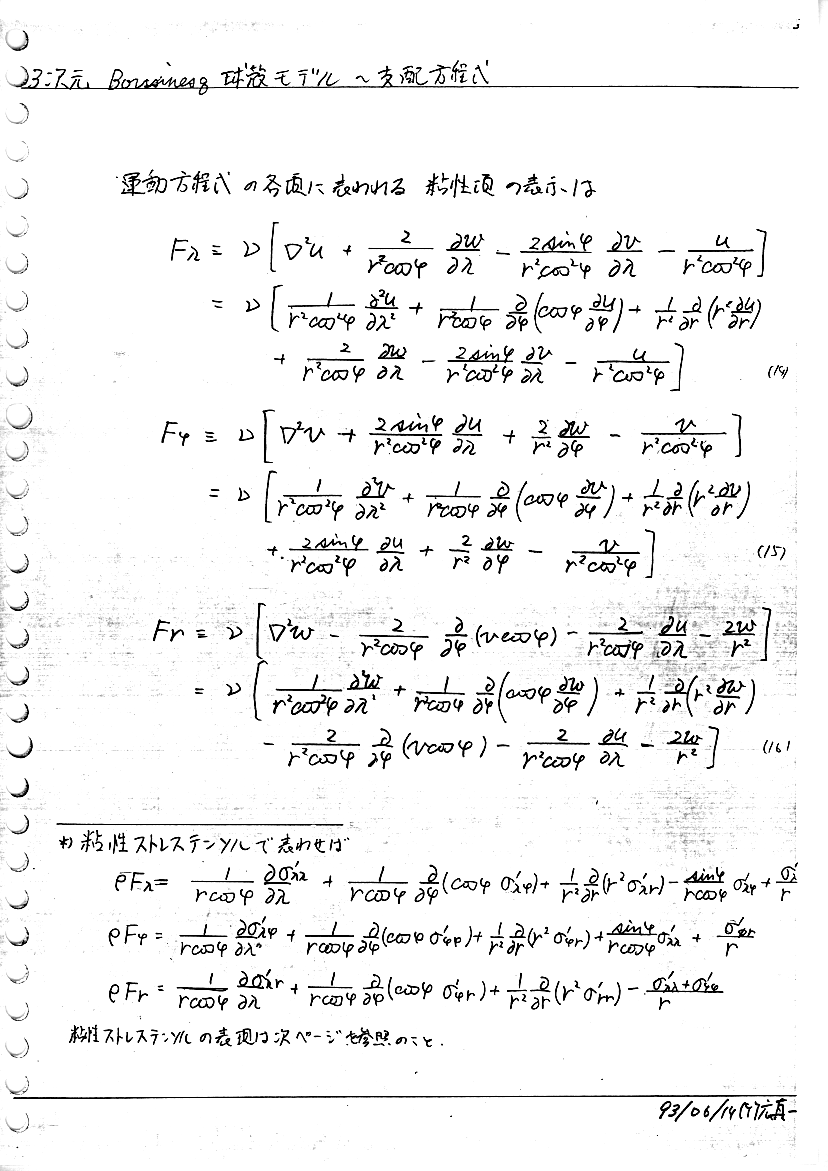 3次元 Boussinesq 球殻モデル ～支配方程式
運動方程式の各項に表われる 粘性項の表示は
Fλ ≡ ν [ ∇²u + 2/(r²cosφ) ∂w/∂λ − 2sinφ/(r²cos²φ) ∂v/∂λ − u/(r²cos²φ) ]
= ν [ 1/(r²cos²φ) ∂²u/∂λ² + 1/(r²cosφ) ∂/∂φ (cosφ ∂u/∂φ) + 1/r² ∂/∂r (r² ∂u/∂r)
+ 2/(r²cosφ) ∂w/∂λ − 2sinφ/(r²cos²φ) ∂v/∂λ − u/(r²cos²φ) ] (14)
Fφ ≡ ν [ ∇²v + 2sinφ/(r²cos²φ) ∂u/∂λ + 2/r² ∂w/∂φ − v/(r²cos²φ) ]
= ν [ 1/(r²cos²φ) ∂²v/∂λ² + 1/(r²cosφ) ∂/∂φ (cosφ ∂v/∂φ) + 1/r² ∂/∂r (r² ∂v/∂r)
+ 2sinφ/(r²cos²φ) ∂u/∂λ + 2/r² ∂w/∂φ − v/(r²cos²φ) ] (15)
Fr ≡ ν [ ∇²w − 2/(r²cosφ) ∂/∂φ (vcosφ) − 2/(r²cosφ) ∂u/∂λ − 2w/r² ]
= ν [ 1/(r²cos²φ) ∂²w/∂λ² + 1/(r²cosφ) ∂/∂φ (cosφ ∂w/∂φ) + 1/r² ∂/∂r (r² ∂w/∂r)
− 2/(r²cosφ) ∂/∂φ (vcosφ) − 2/(r²cosφ) ∂u/∂λ − 2w/r² ] (16)
*) 粘性ストレステンソルで表わせば
ρFλ = 1/(rcosφ) ∂σ'λλ/∂λ + 1/(rcosφ) ∂/∂φ (cosφ σ'λφ) + 1/r² ∂/∂r (r²σ'λr) − sinφ/(rcosφ) σ'λφ + σ'λ/r
ρFφ = 1/(rcosφ) ∂σ'λφ/∂λ + 1/(rcosφ) ∂/∂φ (cosφ σ'φφ) + 1/r² ∂/∂r (r²σ'φr) + sinφ/(rcosφ) σ'λλ + σ'φr/r
ρFr = 1/(rcosφ) ∂σ'λr/∂λ + 1/(rcosφ) ∂/∂φ (cosφ σ'φr) + 1/r² ∂/∂r (r²σ'rr) − (σ'λλ+σ'φφ)/r
粘性ストレステンソルの表現は次ページを参照のこと.
93/06/14